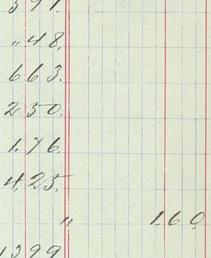 391.
" 48.
663.
250.
1.76.
4.25.
" 1.60
1399